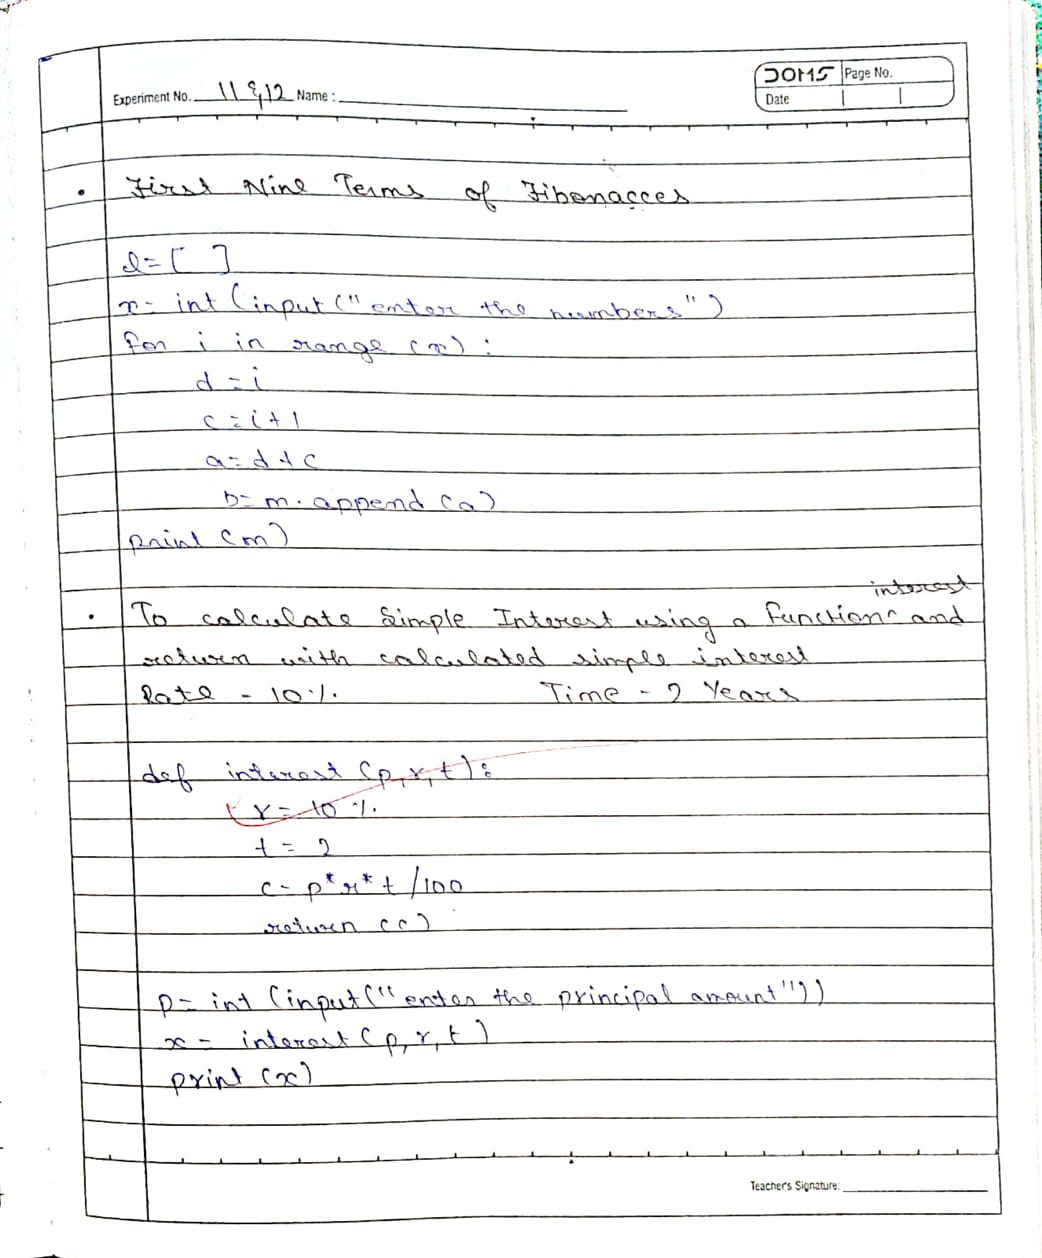 DOMS Page No.
Experiment No. 11 & 12 Name :
Date
• First Nine Terms of Fibonacces
l = [ ]
x = int (input ("enter the numbers")
for i in range (x) :
d = i
c = i + 1
a = d + c
b = m.append (a)
print (m)
interest
• To calculate Simple Interest using a function and
return with calculated simple interest
Rate - 10 %. Time - 2 Years
def interest (p, r, t) :
r = 10 %.
t = 2
c = p * r * t / 100
return (c)
p = int (input ("enter the principal amount"))
x = interest (p, r, t)
print (x)
Teacher's Signature: